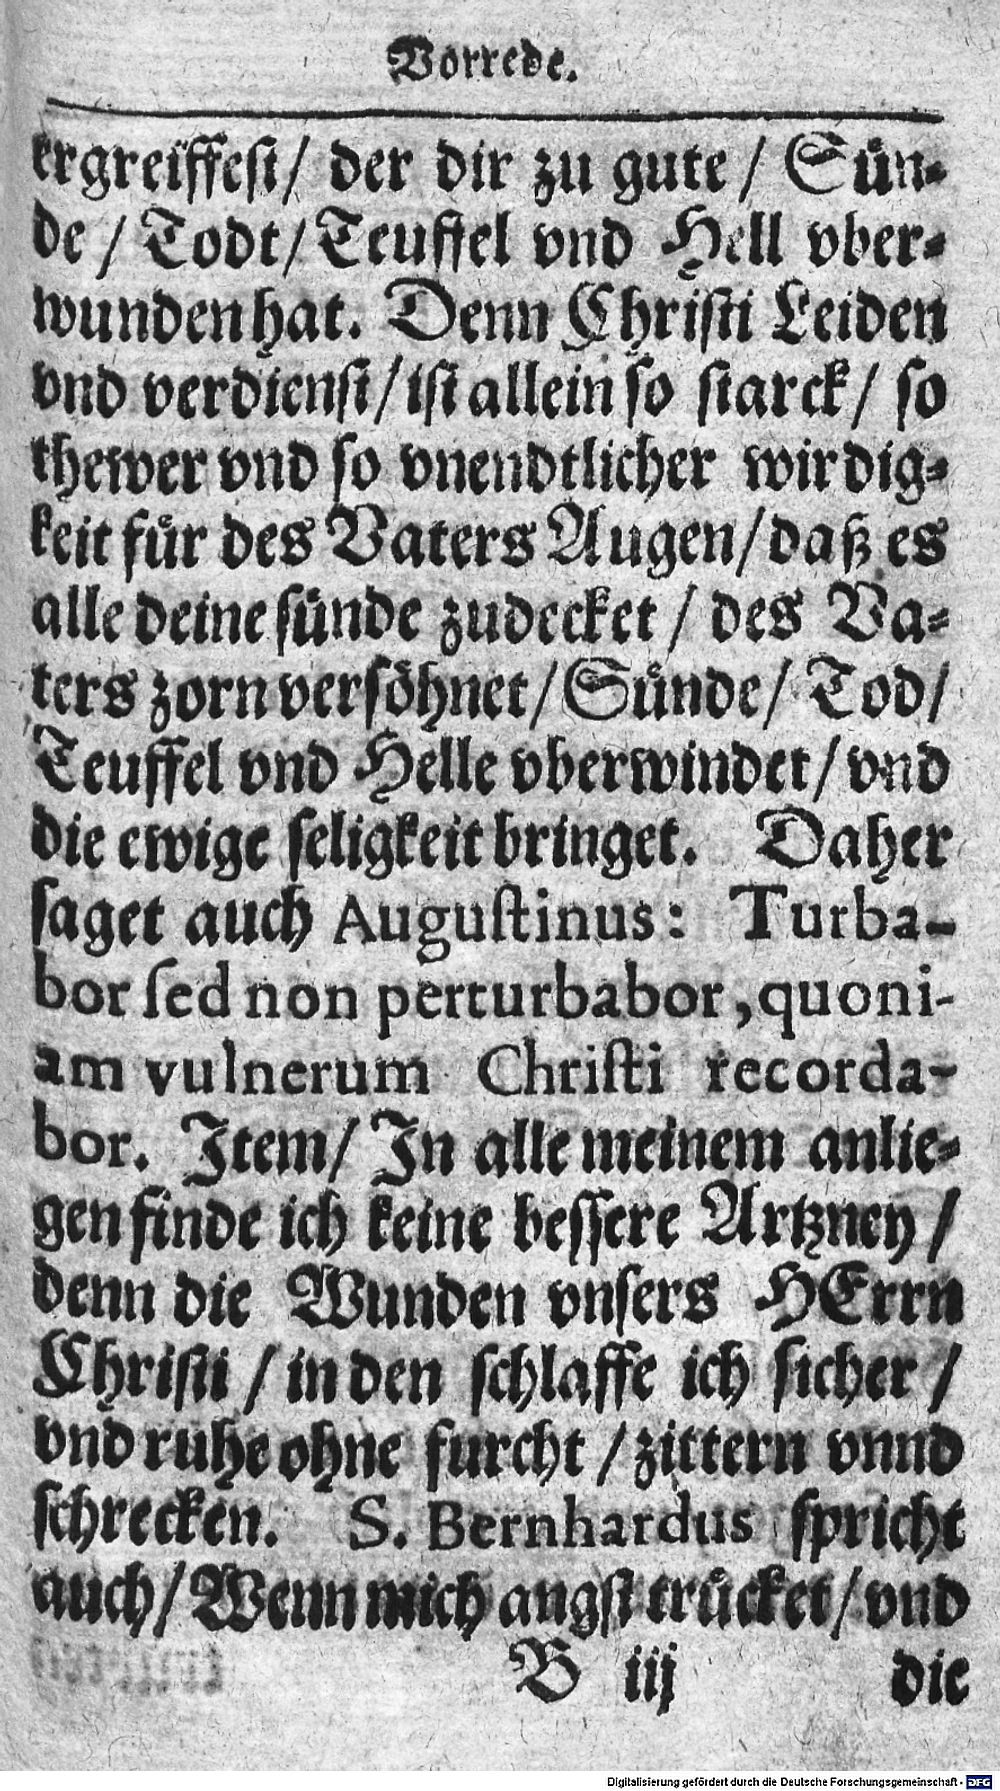 Vorrede.
ergreiffest/ der dir zu gute / Sün-
de / Todt / Teuffel vnd Hell vber-
wunden hat. Denn Christi Leiden
vnd verdienst / ist allein so starck / so
thewer vnd so vnendtlicher wirdig-
keit für des Vaters Augen / daß es
alle deine sünde zudecket / des Va-
ters zorn versöhnet / Sünde / Tod /
Teuffel vnd Helle vberwindet / vnd
die ewige seligkeit bringet. Daher
saget auch Augustinus: Turba-
bor sed non perturbabor, quoni-
am vulnerum Christi recorda-
bor. Item / In alle meinem anlie-
gen finde ich keine bessere Artzney /
denn die Wunden vnsers HErrn
Christi / in den schlaffe ich sicher /
vnd ruhe ohne furcht / zittern vnnd
schrecken. S. Bernhardus spricht
auch / Wenn mich angst trücket / vnd
B iij die
Digitalisierung gefördert durch die Deutsche Forschungsgemeinschaft - DFG